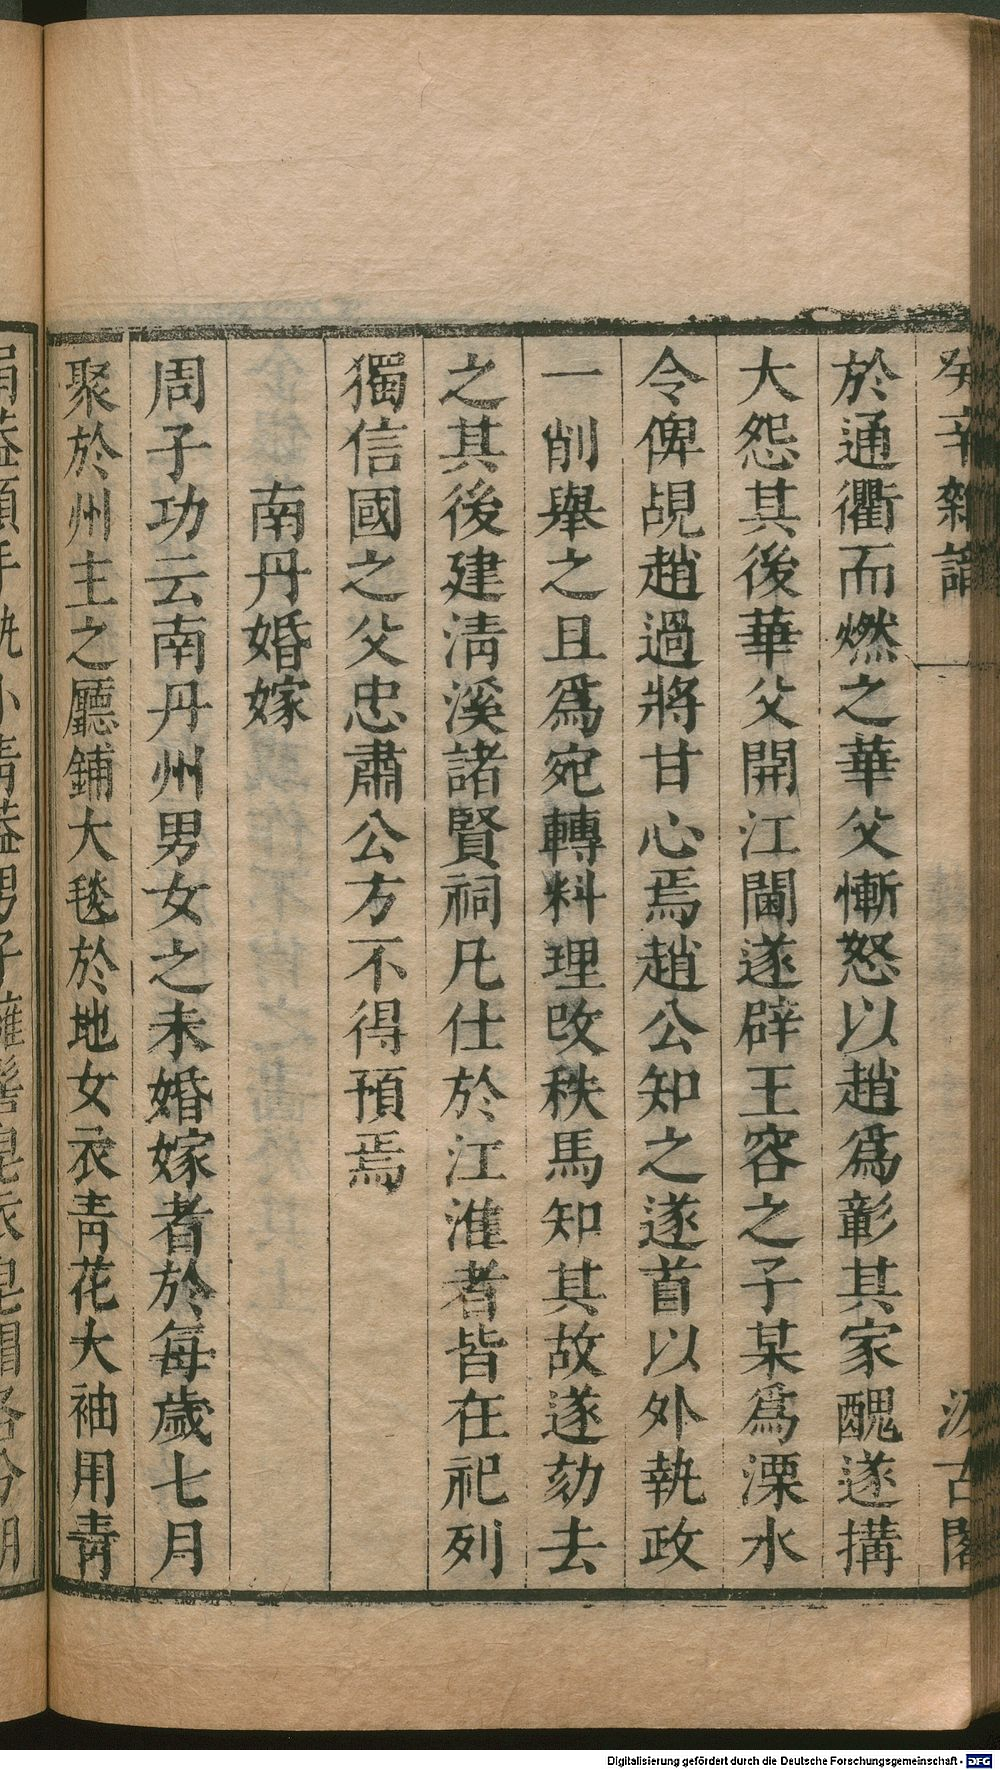 癸辛雜識
汲古閣
於通衢而燃之華父慚怒以趙爲彰其家醜遂搆
大怨其後華父開江閫遂辟王容之子某爲溧水
令俾覘趙過將甘心焉趙公知之遂首以外執政
一削舉之且爲宛轉料理改秩馬知其故遂劾去
之其後建淸溪諸賢祠凡仕於江淮者皆在祀列
獨信國之父忠肅公方不得預焉
南丹婚嫁
周子功云南丹州男女之未婚嫁者於每歲七月
聚於州主之廳鋪大毯於地女衣青花大袖用青
絹蓋頭手執小青蓋男子擁髻皂衣皂帽各分朋
Digitalisierung gefördert durch die Deutsche Forschungsgemeinschaft - DFG